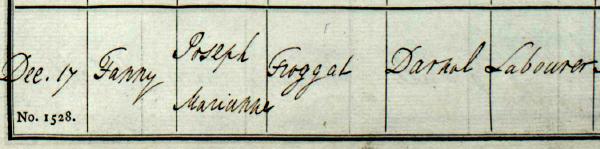 Dec. 17 Fanny Joseph Froggat Darnal Labourer
Marianne
No. 1528.